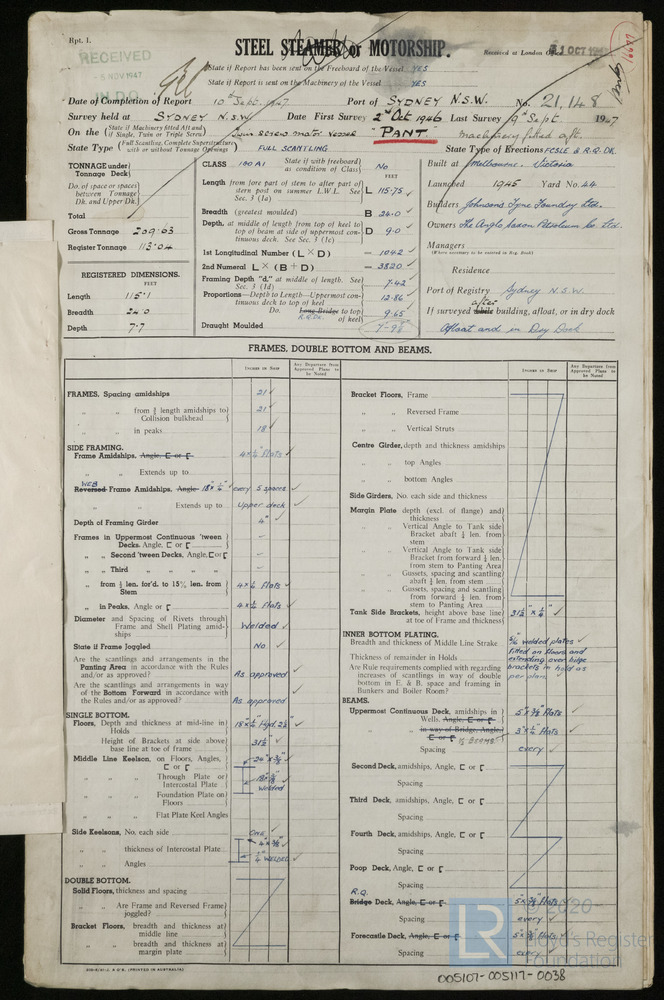 Rpt. 1.
RECEIVED
- 5 NOV 1947
IN D.O.
STEEL STEAMER or MOTORSHIP.
Received at London Office 31 OCT 194
State if Report has been sent on the Freeboard of the Vessel YES
State if Report is sent on the Machinery of the Vessel YES
Date of Completion of Report 10th Sept. 1947 Port of SYDNEY N.S.W. No. 21,148
Survey held at SYDNEY N.S.W. Date First Survey 2nd Oct 1946 Last Survey 9th Sept. 1947
On the (State if Machinery fitted Aft and if Single, Twin or Triple Screw) Twin screw motor vessel "PANT" machinery fitted aft.
State Type (Full Scantling, Complete Superstructure with or without Tonnage Openings) FULL SCANTLING State Type of Erections FCSLE & R.Q. DK.
TONNAGE under Tonnage Deck
Do. of space or spaces between Tonnage Dk. and Upper Dk.
Total
Gross Tonnage 209.63
Register Tonnage 113.04
REGISTERED DIMENSIONS.
FEET
Length 115.1
Breadth 24.0
Depth 7.7
CLASS 100 A1 State if with freeboard as condition of Class No
FEET
Length (from fore part of stem to after part of stern post on summer L.W.L. See Sec. 3 (1a) L 115.75
Breadth (greatest moulded) B 24.0
Depth, at middle of length from top of keel to top of beam at side of uppermost continuous deck. See Sec. 3 (1c) D 9.0
1st Longitudinal Number (L × D) = 1042
2nd Numeral L × (B + D) = 3820
Framing Depth "d," at middle of length. See Sec. 3 (1d) 7.42
Proportions—Depth to Length—Uppermost continuous deck to top of keel 12.86
Do. Long Bridge to top of keel R.Q.DK. 9.65
Draught Moulded 7-98
Built at Melbourne. Victoria
Launched 1945 Yard No. 44
Builders Johnsons Tyne Foundry Ltd.
Owners The Anglo Saxon Petroleum Co. Ltd.
Managers
(Where necessary to be entered in Reg. Book)
Residence
Port of Registry Sydney N.S.W.
If surveyed while after building, afloat, or in dry dock
Afloat and in Dry Dock
FRAMES, DOUBLE BOTTOM AND BEAMS.
INCHES IN SHIP
Any Departure from Approved Plans to be Noted
INCHES IN SHIP
Any Departure from Approved Plans to be Noted
FRAMES, Spacing amidships 21
" " from ¾ length amidships to Collision bulkhead 21
" " in peaks 18
SIDE FRAMING.
Frame Amidships, Angle, [ or [ 4×¼ Flats
" " Extends up to
Reversed WEB Frame Amidships, Angle 18"×¼" every 5 spaces
" " Extends up to Upper deck
Depth of Framing Girder 4"
Frames in Uppermost Continuous 'tween Decks, Angle, [ or [ -
" " Second 'tween Decks, Angle, [ or [ -
" " Third " " " " -
" " from ½ len. for'd. to 15% len. from Stem 4×¼ Flats
" " in Peaks, Angle or [ 4×¼ Flats
Diameter and Spacing of Rivets through Frame and Shell Plating amidships Welded
State if Frame Joggled No.
Are the scantlings and arrangements in the Panting Area in accordance with the Rules and/or as approved? As approved
Are the scantlings and arrangements in way of the Bottom Forward in accordance with the Rules and/or as approved? As approved
SINGLE BOTTOM.
Floors, Depth and thickness at mid-line in Holds 18"×¼" Flgd. 2½"
Height of Brackets at side above base line at toe of frame 31½"
Middle Line Keelson, on Floors, Angles, [ or [
" " " Through Plate or Intercostal Plate Welded
" " " Foundation Plate on Floors
" " " Flat Plate Keel Angles
Side Keelsons, No. each side ONE
" " thickness of Intercostal Plate
" " Angles ¼" WELDED
DOUBLE BOTTOM.
Solid Floors, thickness and spacing
" " Are Frame and Reversed Frame joggled?
Bracket Floors, breadth and thickness at middle line
" " breadth and thickness at margin plate
Bracket Floors, Frame
" " Reversed Frame
" " Vertical Struts
Centre Girder, depth and thickness amidships
" " top Angles
" " bottom Angles
Side Girders, No. each side and thickness
Margin Plate depth (excl. of flange) and thickness
" " Vertical Angle to Tank side Bracket abaft ¼ len. from stem
" " Vertical Angle to Tank side Bracket from forward ¼ len. from stem to Panting Area
" " Gussets, spacing and scantling abaft ¼ len. from stem
" " Gussets, spacing and scantling from forward ¼ len. from stem to Panting Area
Tank Side Brackets, height above base line at toe of Frame and thickness 31½"×¼"
INNER BOTTOM PLATING.
Breadth and thickness of Middle Line Strake 5/16 welded plates
Thickness of remainder in Holds fitted on floors and
extending over bilge
brackets in hold as
per plan
Are Rule requirements complied with regarding increases of scantlings in way of double bottom in E. & B. space and framing in Bunkers and Boiler Room?
BEAMS.
Uppermost Continuous Deck, amidships in Wells, Angle, [ or [ 5"×3/8" Flats
" " in way of Bridge, Angle, [ or [ ½ BEAMS 3"×¼" Flats
Spacing every
Second Deck, amidships, Angle, [ or [
Spacing
Third Deck, amidships, Angle, [ or [
Spacing
Fourth Deck, amidships, Angle, [ or [
Spacing
Poop Deck, Angle, [ or [
Spacing
R.Q.
Bridge Deck, Angle, [ or [ 5"×3/8" Flats
Spacing every
Forecastle Deck, Angle, [ or [ 5"×3/8" Flats
Spacing every
(PRINTED IN AUSTRALIA)
LR
© 2020
Lloyd's Register
Foundation
005107-005117-0038